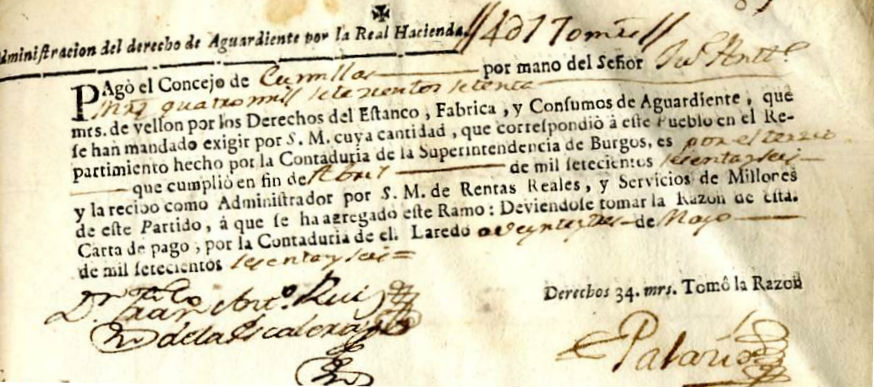 dministracion del derecho de Aguardiente por la Real Hacienda.
PAgò el Concejo de Cumillas por mano del Señor
quatro mill setezientos setenta
mrs. de vellon por los Derechos del Estanco, Fabrica, y Consumos de Aguardiente, que
se han mandado exigir por S. M. cuya cantidad, que correspondiò à este Pueblo en el Re-
partimiento hecho por la Contaduria de la Superintendencia de Burgos, es por el terzio
que cumpliò en fin de Abril de mil setecientos sesenta y seis
y la recibo como Administrador por S. M. de Rentas Reales, y Servicios de Millones
de este Partido, à que se ha agregado este Ramo: Deviendose tomar la Razon de esta
Carta de pago, por la Contaduria de el. Laredo a veynte y tres de Mayo
de mil setecientos sesenta y seis
Derechos 34. mrs. Tomô la Razon
Dn Juan Anto. Ruiz
de la Escalera
Palario